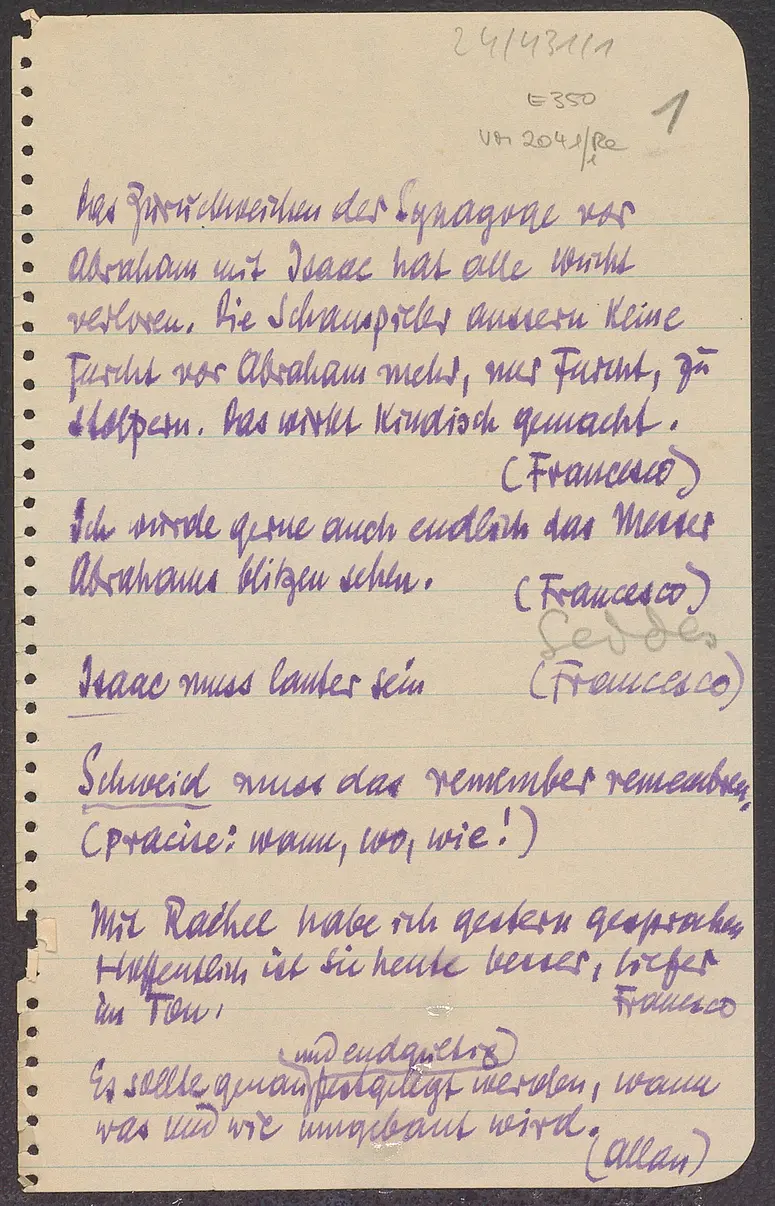 24/431/1
E350
1
Das Zurückweichen der Synagoge vor
Abraham mit Isaac hat alle Wucht
verloren. Die Schauspieler äussern keine
Furcht vor Abraham mehr, nur Furcht, zu
stolpern. Das wirkt kindisch gemacht.
(Francesco)
Ich würde gerne auch endlich das Messer
Abrahams blitzen sehen.
(Francesco)
Geddes
Isaac muss lauter sein
(Francesco)
Schweid muss das remember remembren,
(präcise: wann, wo, wie!)
Mit Rachel habe ich gestern gesprochen
Hoffentlich ist sie heute besser, tiefer
im Ton.
Francesco
und endgültig
Es sollte genau festgelegt werden, wann
was und wie umgebaut wird.
(Allan)